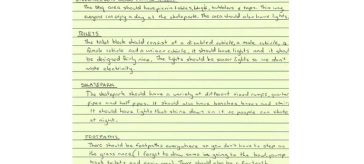 The BBQ area should have picnic tables, bbq's, bubblers & taps. This way
everyone can enjoy a day at the skatepark. The area should also have lights.
TOILETS
The toilet block should consist of a disabled cubicle, a male cubicle, a
female cubicle and a unisex cubicle, it should have lights and it should
be designed fairly nice. The lights should be sensor lights so we don't
waste electricity.
SKATEPARK
The skatepark should have a variety of different sized ramps, quarter
pipes and half pipes. It should also have benches, boxes and stairs.
It should have lights that shine down on it so people can skate
at night.
FOOTPATHS
There should be footpaths everywhere so you don't have to step on
the grass